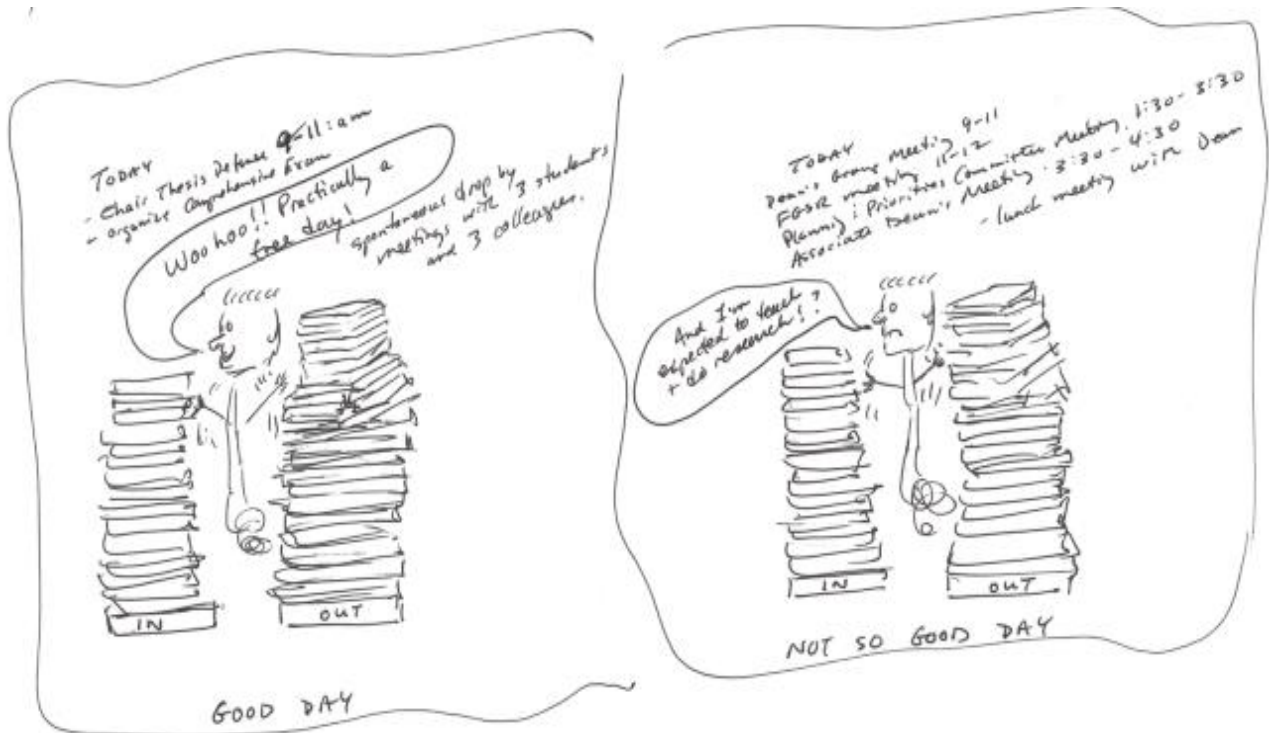 TODAY
- Chair Thesis Defense 9-11:am
- organize Comprehensive Exam
Woohoo!! Practically a
free day!
spontaneous drop by
meetings with 3 students
and 3 colleagues.
IN
OUT
GOOD DAY
TODAY
Dean's Group Meeting 9-11
FGSR meeting 11-12
Planning & Priorities Committee Meeting. 1:30-3:30
Associate Dean's Meeting. 3:30-4:30
- lunch meeting with Dean
And I'm
expected to teach
+ do research!?
IN
OUT
NOT SO GOOD DAY